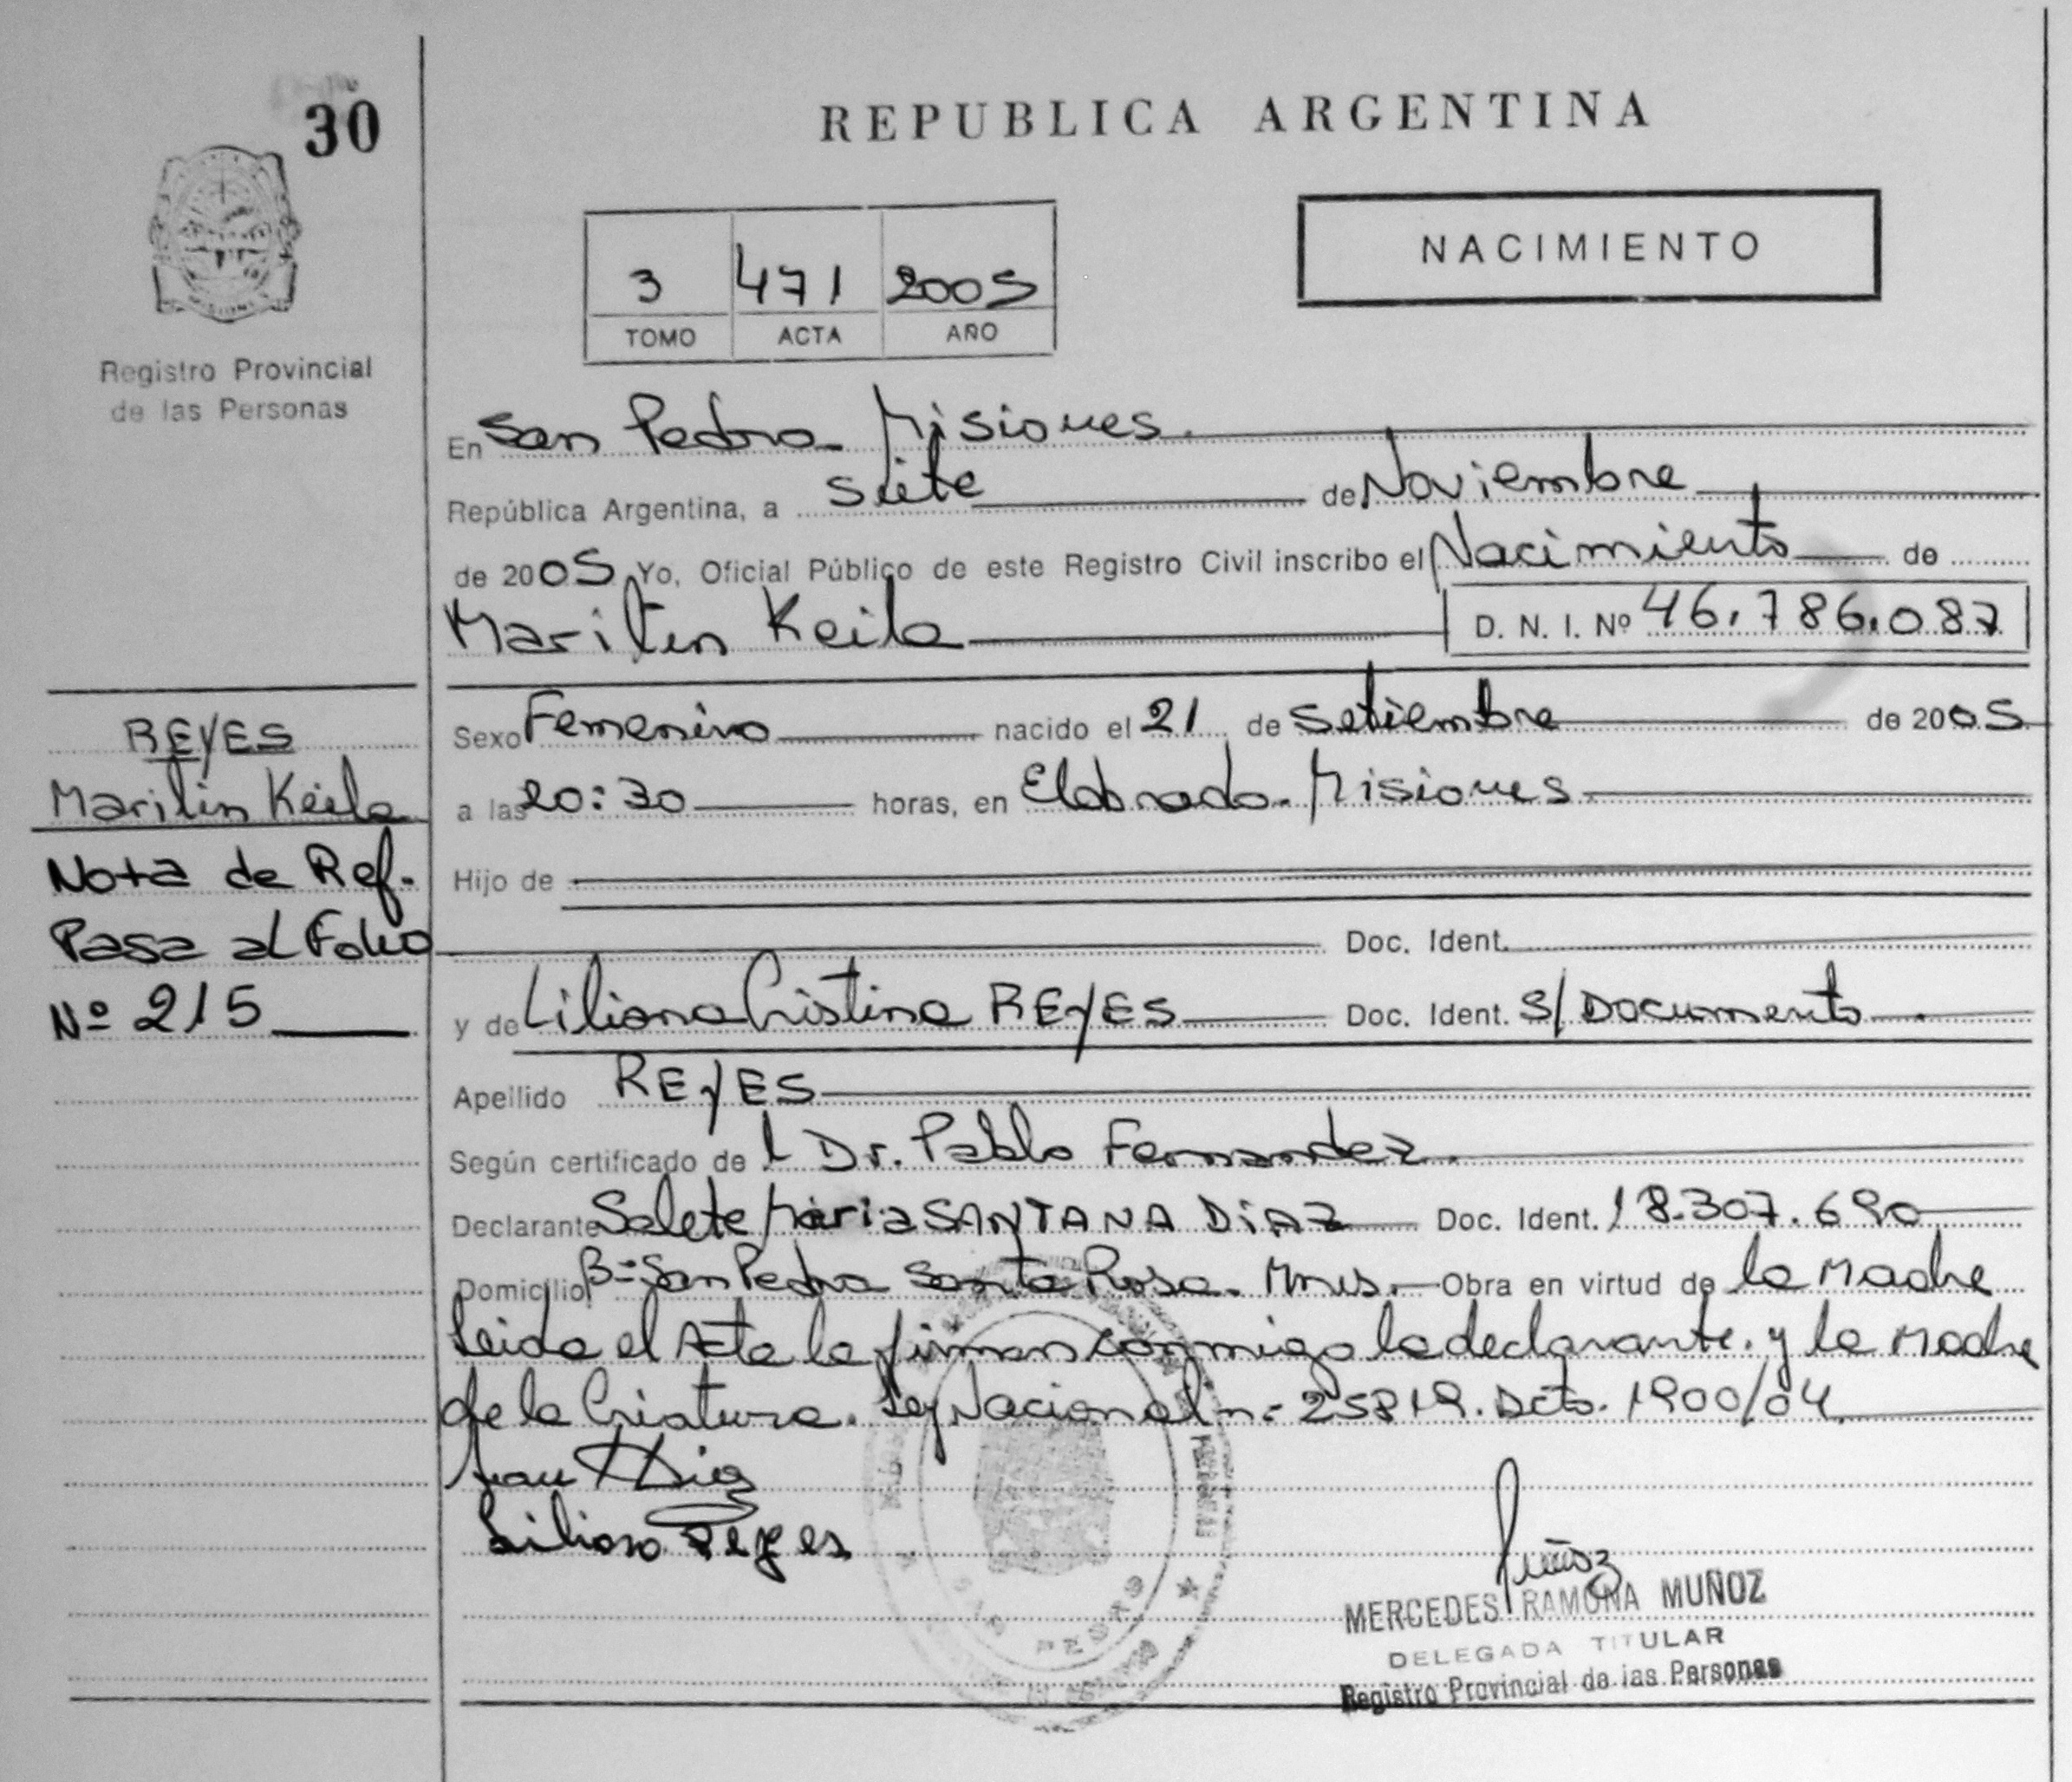 30
REPUBLICA ARGENTINA
NACIMIENTO
3 471 2005
TOMO ACTA AÑO
Registro Provincial
de las Personas
En San Pedro - Misiones.
República Argentina, a siete de Noviembre
de 2005 Yo, Oficial Público de este Registro Civil inscribo el Nacimiento de
Marilin Keila D. N. I. Nº 46.786.087
REYES
Marilin Keila
Nota de Ref.
Pasa al Folio
Nº 215
Sexo Femenino nacido el 21 de Setiembre de 2005
a las 20:30 horas, en Eldorado - Misiones
Hijo de
Doc. Ident.
y de Liliana Cristina REYES Doc. Ident. S/Documento
Apellido REYES
Según certificado del Dr. Pablo Fernandez.
Declarante Salete Maria SANTANA DiAZ Doc. Ident. 18.307.690
Domicilio Bº San Pedro Santa Rosa - Mnes. Obra en virtud de la Madre
Leida el Acta la firman conmigo la declarante y la Madre
de la Criatura. Ley Nacional nº 25819. Dcto. 1900/04
Liliana Reyes
Muñoz
MERCEDES RAMONA MUÑOZ
DELEGADA TITULAR
Registro Provincial de las Personas
SAN PEDRO